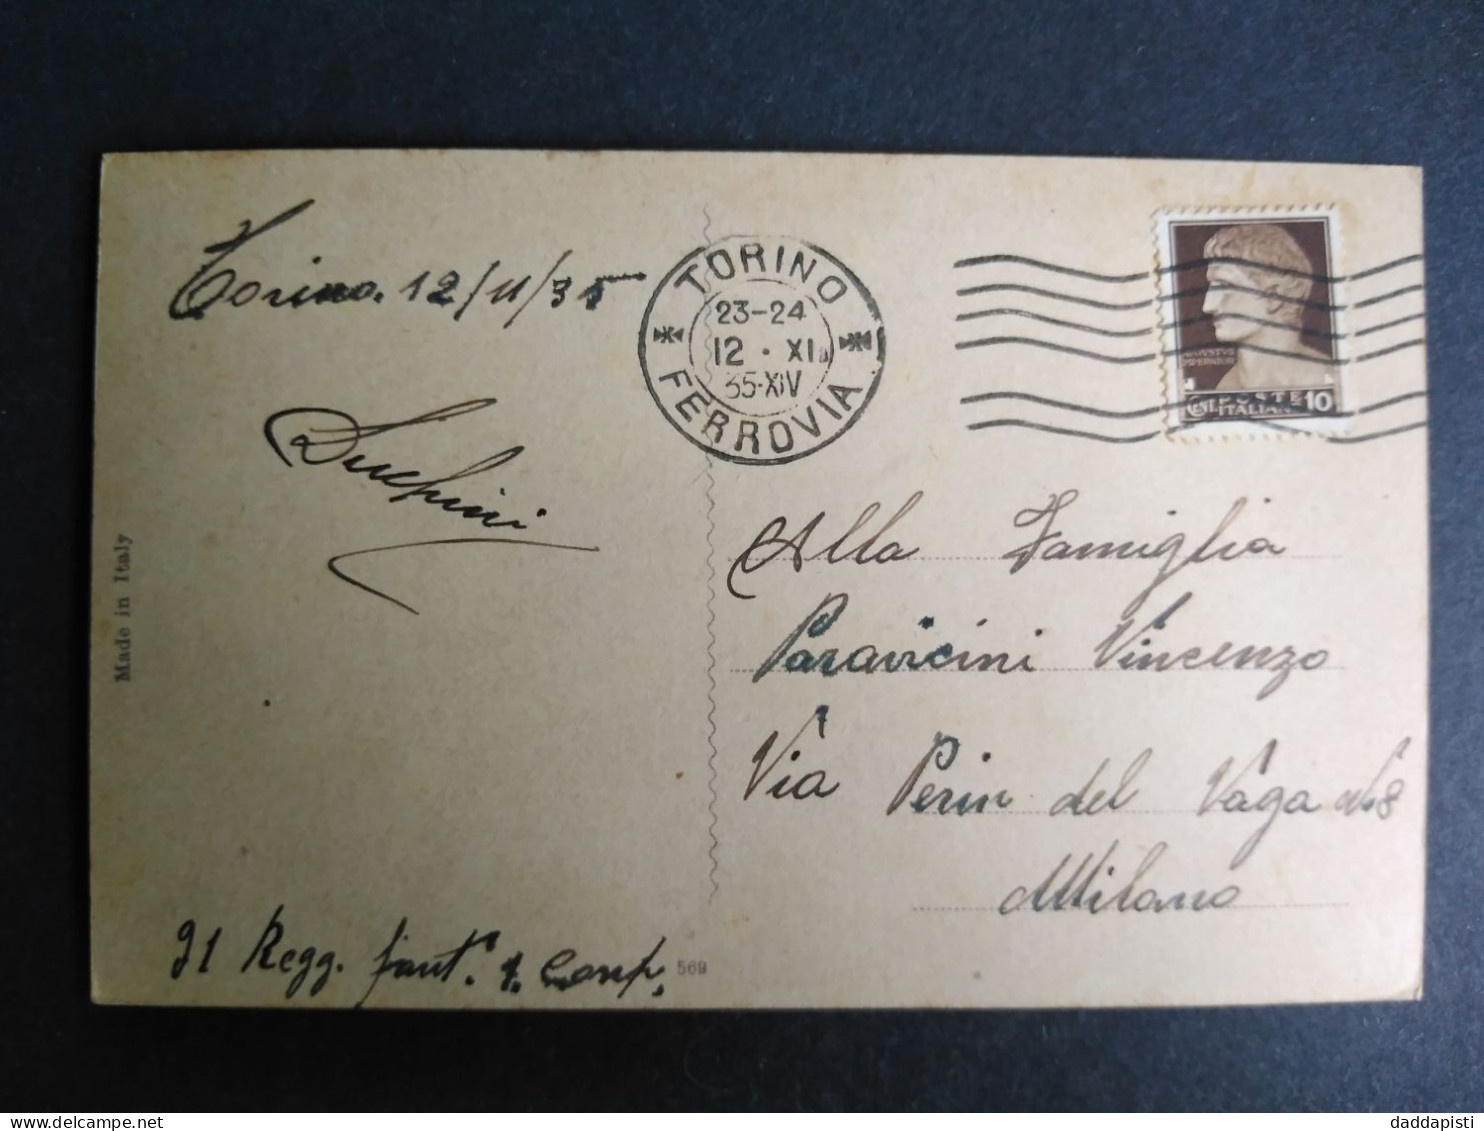 Torino. 12/11/35
TORINO
23-24
12 · XI
35·XIV
FERROVIA
AVGVSTVS
IMPERATOR
CENT POSTE
ITALIANE 10
Duchini
Alla Famiglia
Paravicini Vincenzo
Via Perin del Vaga N.8
Milano
91 Regg. fant. 1. Comp.
569
Made in Italy
daddapisti